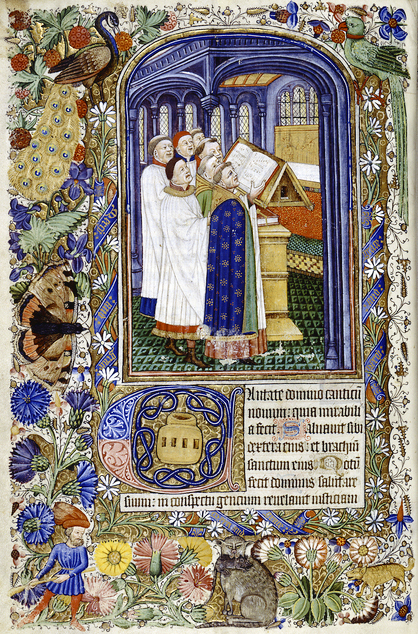 Cantate domino canticũ
nouum: quia mirabili
a fecit. Saluauit sibi
dextera eius: et brachiũ
sanctum eius. Notũ
fecit dominus salutare
suum: in conspectu gencium reuelauit iusticiam